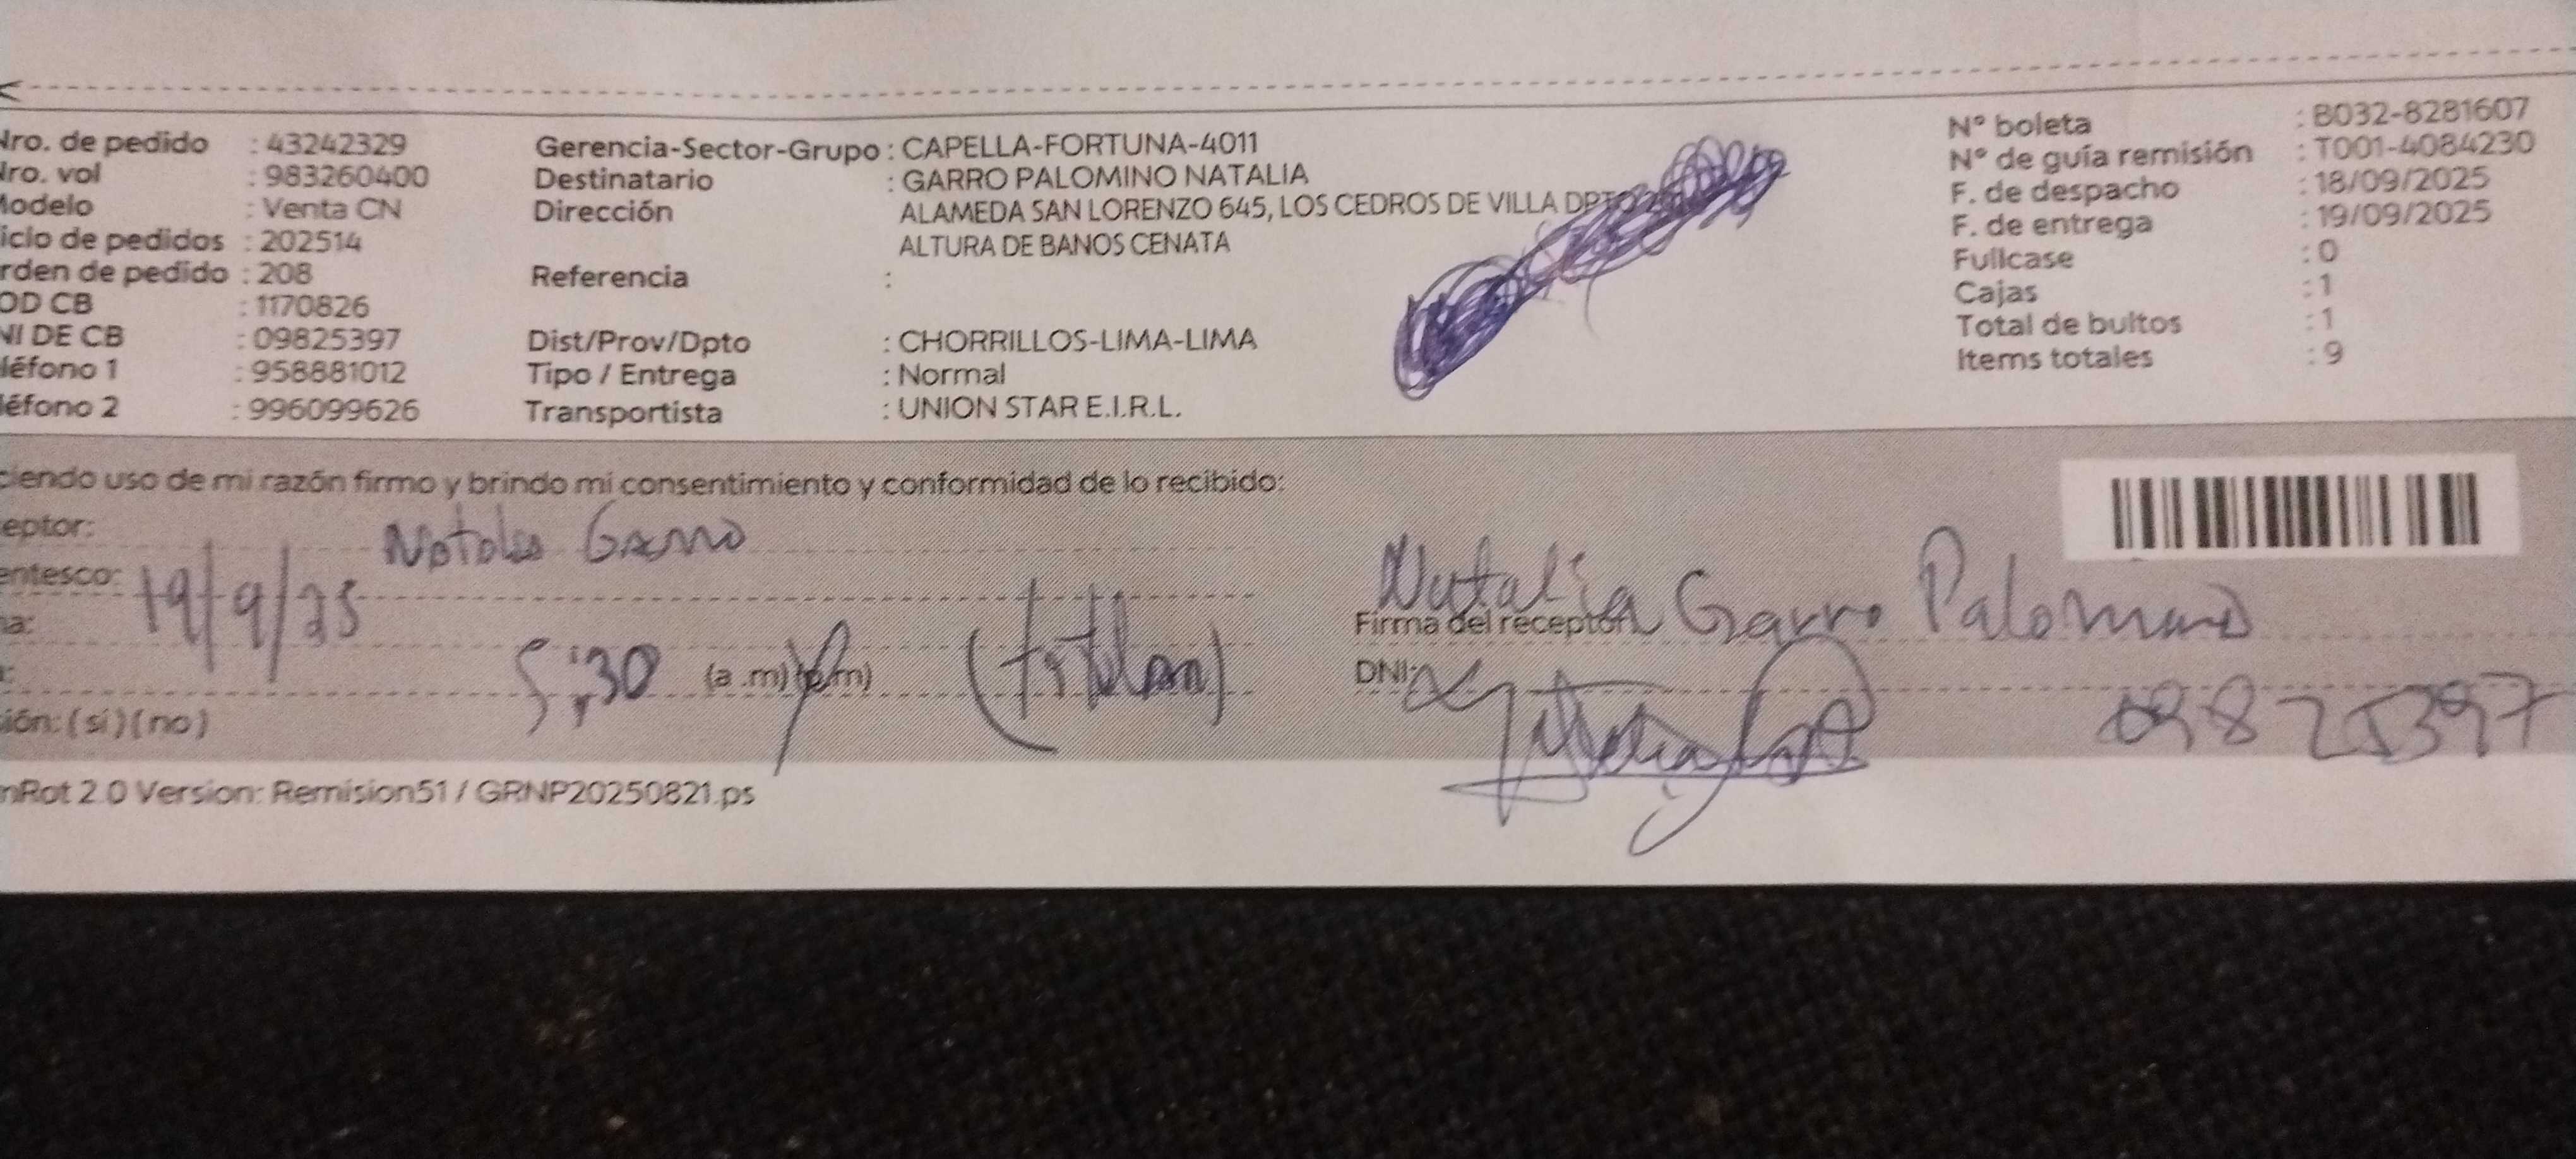 Nro. de pedido : 43242329
Nro. vol : 983260400
Modelo : Venta CN
iclo de pedidos : 202514
rden de pedido : 208
OD CB : 1170826
NI DE CB : 09825397
léfono 1 : 958881012
léfono 2 : 996099626
Gerencia-Sector-Grupo : CAPELLA-FORTUNA-4011
Destinatario : GARRO PALOMINO NATALIA
Dirección ALAMEDA SAN LORENZO 645, LOS CEDROS DE VILLA DPTO
ALTURA DE BANOS CENATA
Referencia :
Dist/Prov/Dpto : CHORRILLOS-LIMA-LIMA
Tipo / Entrega : Normal
Transportista : UNION STAR E.I.R.L.
N° boleta : B032-8281607
N° de guía remisión : T001-4084230
F. de despacho : 18/09/2025
F. de entrega : 19/09/2025
Fullcase : 0
Cajas : 1
Total de bultos : 1
Items totales : 9
ciendo uso de mi razón firmo y brindo mi consentimiento y conformidad de lo recibido:
eptor: Natalia Garro
entesco:
ha: 19/9/25
: 5:30 (a .m) (p.m)
sión: ( si ) ( no )
Natalia Garro Palomino
Firma del receptor
DNI: 09825397
nRot 2.0 Version: Remision51 / GRNP20250821.ps